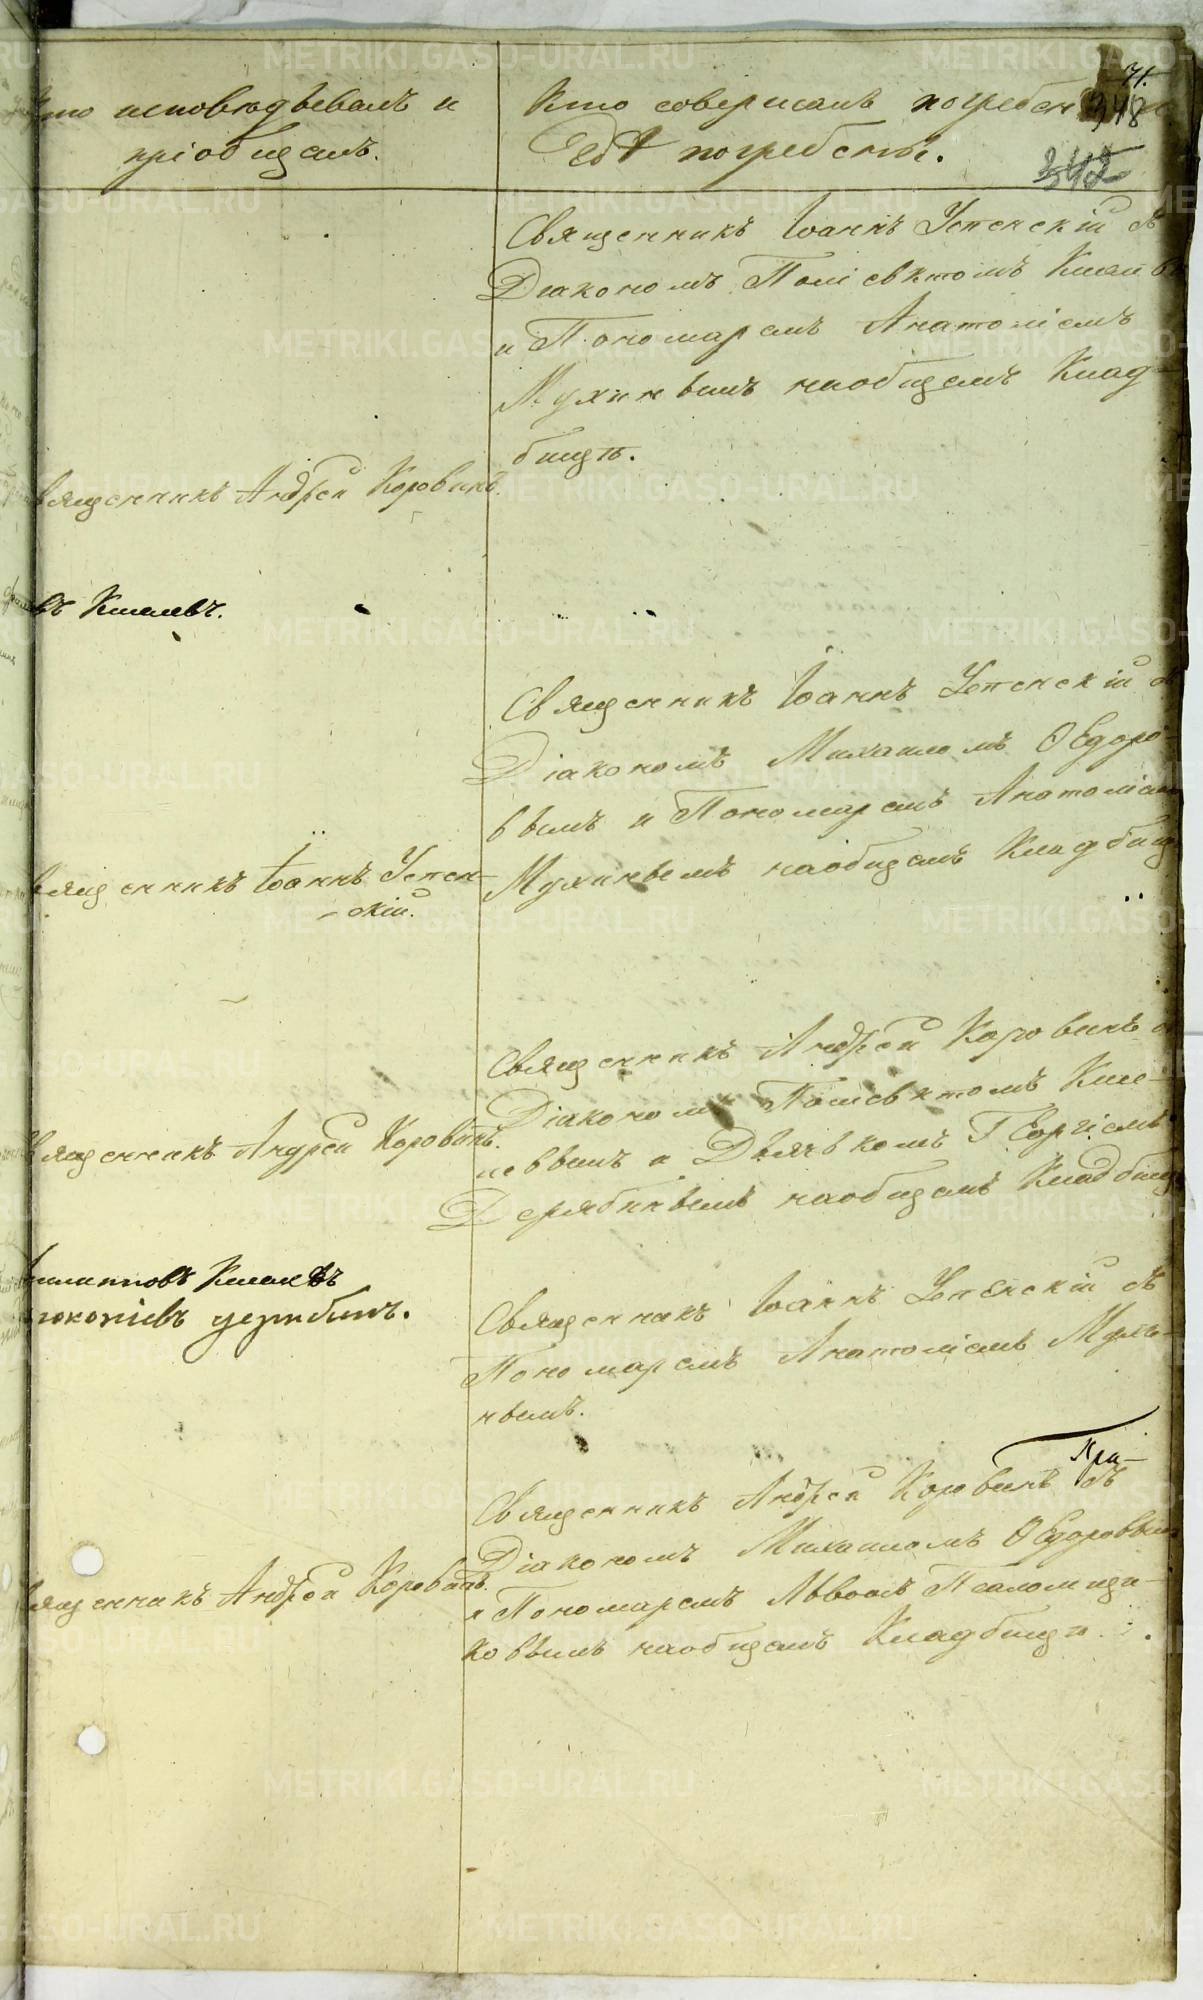 71.
348
342
Кто исповѣдывалъ и
пріобщалъ.
Кто совершалъ погребен
гдѣ погребены.
Священникъ Іоаннъ Успенскій съ
Діакономъ Поліевктомъ Кы
и Пономаремъ Анатоліемъ
Мухинымъ на общемъ Клад-
бищѣ.
вященникъ Андрей Коровинъ.
Священникъ Іоаннъ Успенскій съ
Діакономъ Михаиломъ Ѳедоро-
вымъ и Пономаремъ Анатоліемъ
Мухинымъ на общемъ Кладбищ
вященникъ Іоаннъ Успен-
скій.
Священникъ Андрей Коровинъ съ
Діакономъ Поліевктомъ
и Дьячкомъ Георгіемъ
Дерябинымъ на общемъ Кладбищ
вященникъ Андрей Коровинъ.
Священникъ Іоаннъ Успенскій съ
Пономаремъ Анатоліемъ Мухи-
нымъ.
Священникъ Андрей Коровинъ съ
Діакономъ Михаиломъ Ѳедоровым
и Пономаремъ Львомъ Псаломщи-
ковымъ на общемъ Кладбищѣ.
вященникъ Андрей Коровинъ.
METRIKI.GASO-URAL.RU